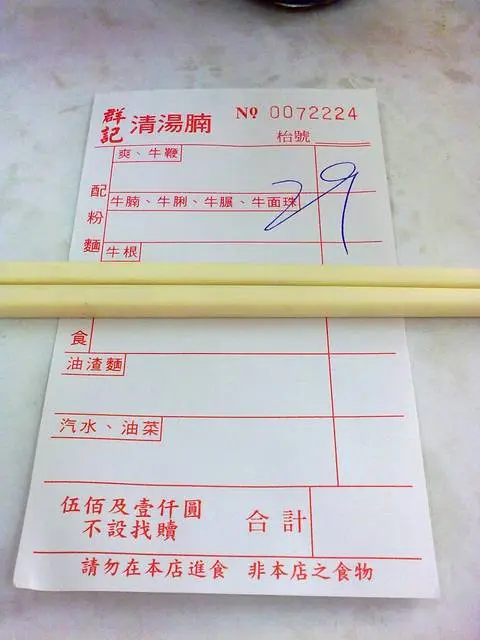 群記 清湯腩 № 0072224
枱號
爽、牛鞭
配粉麵
牛腩、牛脷、牛𦟌、牛面珠
29
牛根
食
油渣麵
汽水、油菜
伍佰及壹仟圓
不設找贖
合計
請勿在本店進食 非本店之食物